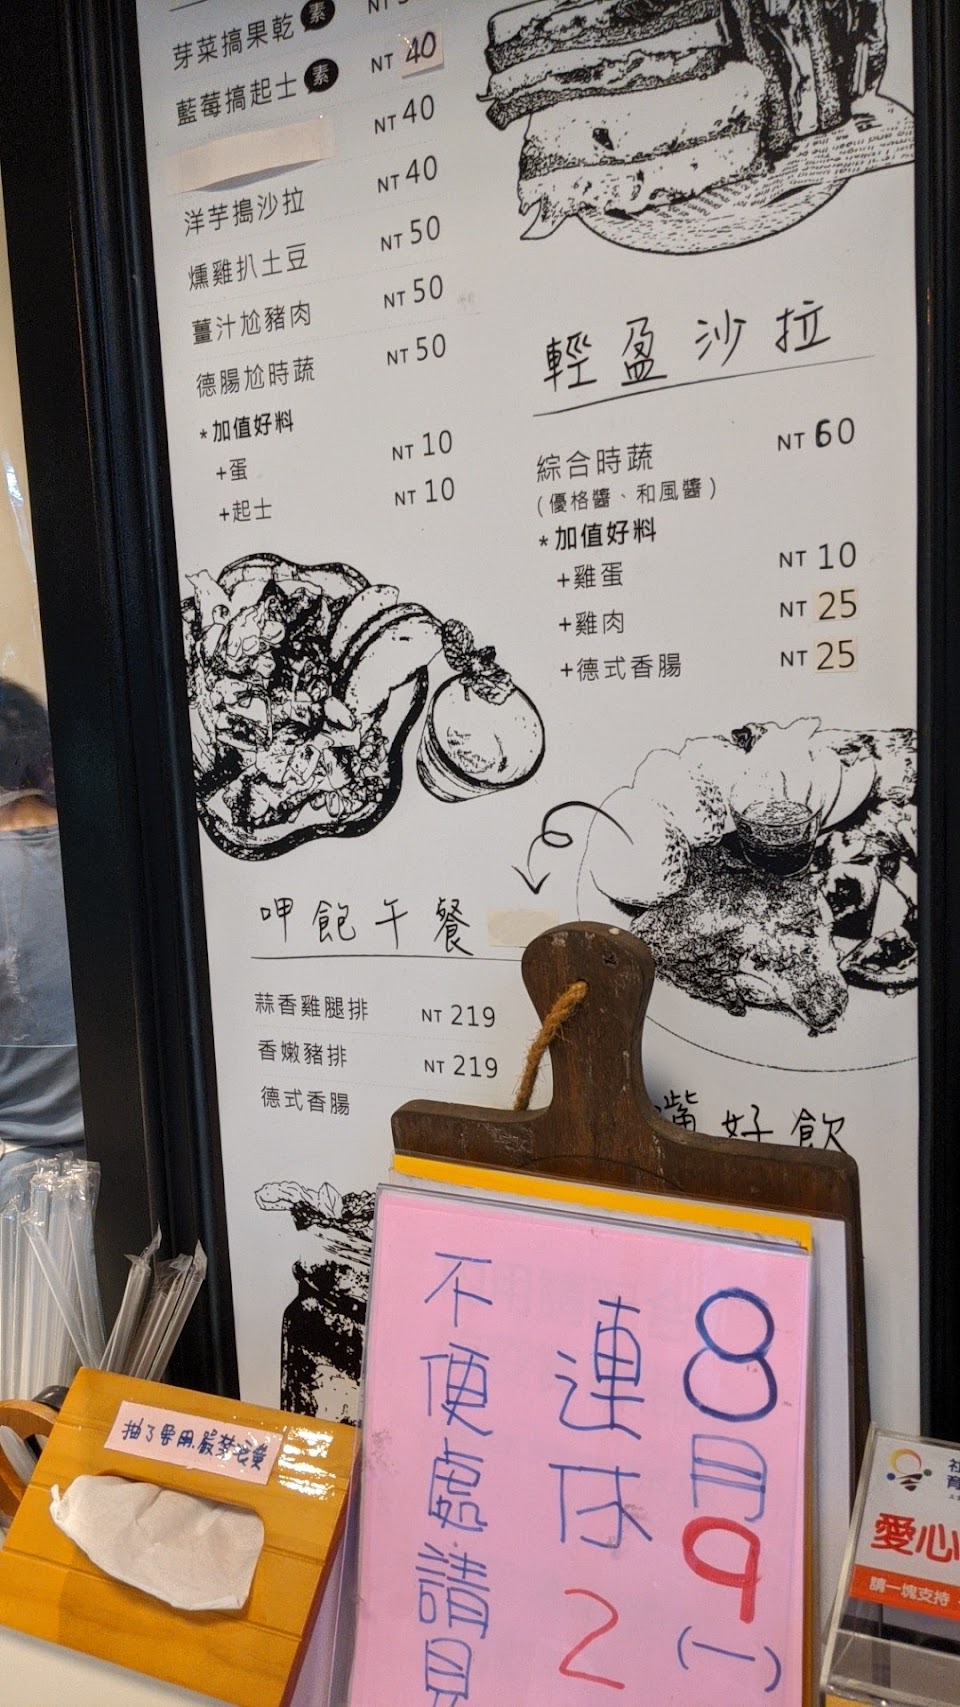 芽菜搞果乾 素 NT
藍莓搞起士 素 NT 40
NT 40
洋芋搗沙拉 NT 40
燻雞扒土豆 NT 50
薑汁尬豬肉 NT 50
德腸尬時蔬 NT 50
*加值好料
+蛋 NT 10
+起士 NT 10
輕盈沙拉
綜合時蔬 NT 60
(優格醬、和風醬)
*加值好料
+雞蛋 NT 10
+雞肉 NT 25
+德式香腸 NT 25
呷飽午餐
蒜香雞腿排 NT 219
香嫩豬排 NT 219
德式香腸
嘴好飲
8月9(一)
連休2
不便處請見
抽了要用.嚴禁浪費
愛心
請一塊支持